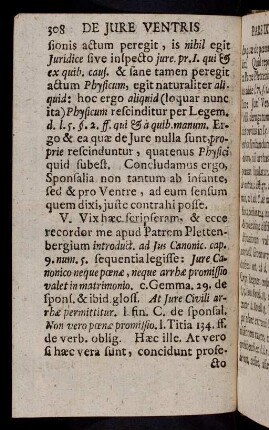 308 DE JURE VENTRIS
sionis actum peregit, is nihil egit
Juridice sive inspecto jure. pr. l. qui &
ex quib. cauſ. & sane tamen peregit
actum Physicum, egit naturaliter ali-
quid: hoc ergo aliquid (loquar nunc
ita) Physicum reſcinditur per Legem,
d. l. 5. §. 2. ff. qui & à quib. manum. Er-
go & ea quæ de Jure nulla ſunt, pro-
prie reſcinduntur, quatenus Physici
quid ſubeſt. Concludamus ergo,
Sponſalia non tantum ab infante,
ſed & pro Ventre, ad eum ſenſum
quem dixi, juſte contrahi poſſe.
V. Vix hæc ſcripſeram, & ecce
recordor me apud Patrem Pletten-
bergium introduct. ad Jus Canonic. cap.
9. num. 5. ſequentia legiſſe: Jure Ca-
nonico neque pœnæ, neque arrhæ promiſſio
valet in matrimonio. c. Gemma. 29. de
ſponſ. & ibid. gloſſ. At Jure Civili ar-
rhæ permittitur. l. fin. C. de ſponſal.
Non vero pœnæ promiſſio. l. Titia 134. ff.
de verb. oblig. Hæc ille. At vero
ſi hæc vera ſunt, concidunt profe-
cto